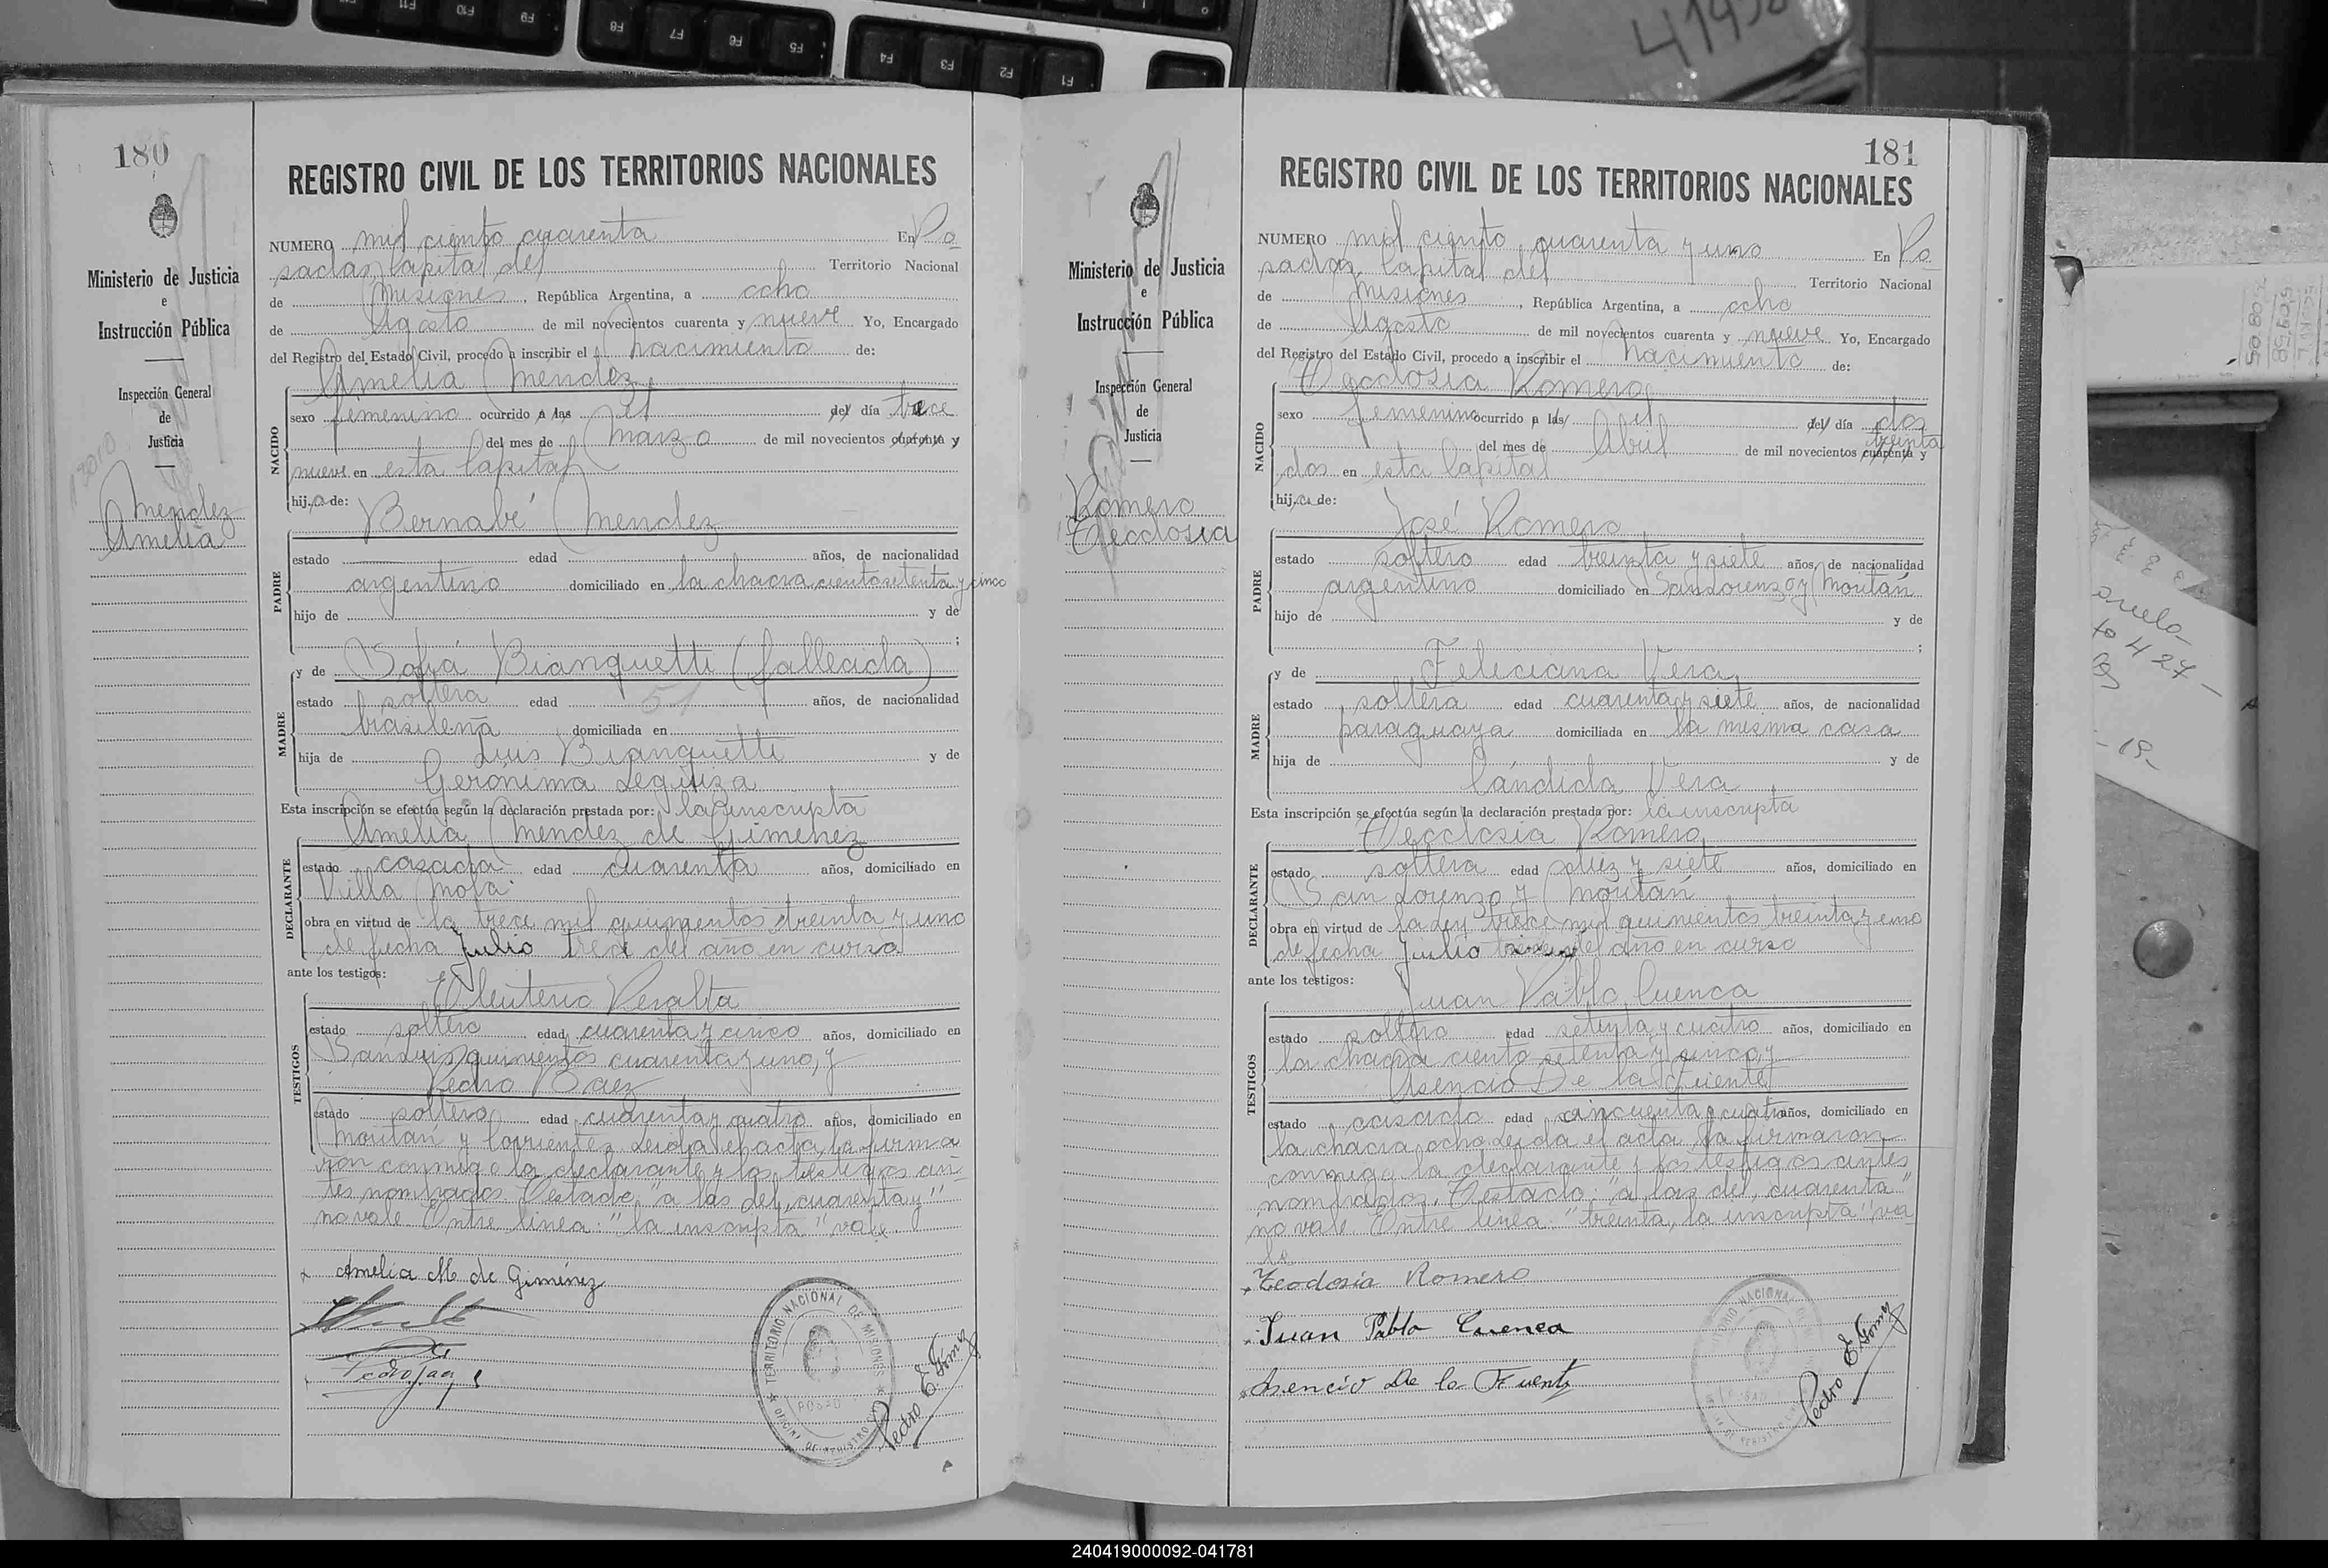 180
REGISTRO CIVIL DE LOS TERRITORIOS NACIONALES
Ministerio de Justicia
e
Instrucción Pública
Inspección General
de
Justicia
Mendez
Amelia
NUMERO mil ciento cuarenta En Po
sadas, Capital del Territorio Nacional
de Misiones, República Argentina, a ocho
de Agosto de mil novecientos cuarenta y nueve Yo, Encargado
del Registro del Estado Civil, procedo a inscribir el nacimiento de:
Amelia Mendez
NACIDO
sexo femenino ocurrido a las el del día trece
del mes de Marzo de mil novecientos cuarenta y
nueve en esta Capital
hija de:
Bernabé Mendez
PADRE
estado edad años, de nacionalidad
argentino domiciliado en la chacra ciento setenta y cinco
hijo de y de
;
y de Sofía Bianquetti (fallecida)
MADRE
estado soltera edad 51 años, de nacionalidad
brasileña domiciliada en
hija de Luis Bianquetti y de
Gerónima Leguiza
Esta inscripción se efectúa según la declaración prestada por: la inscripta
Amelia Mendez de Gimenez
DECLARANTE
estado casada edad cuarenta años, domiciliado en
Villa Mola
obra en virtud de la trece mil quinientos treinta y uno
de fecha Julio trece del año en curso
ante los testigos:
Eleuterio Peralta
TESTIGOS
estado soltero edad cuarenta y cinco años, domiciliado en
San Luis quinientos cuarenta y uno, y
Pedro Baez
estado soltero edad cuarenta y cuatro años, domiciliado en
Moritán y Corrientes. Leida el acta, la firma
ron conmigo la declarante y los testigos an
tes nombrados. Testado: "a las del, cuarenta y"
no vale. Entre linea: "la inscripta" vale.
Amelia M. de Giménez
TERRITORIO NACIONAL DE MISIONES
OFICINA DE REGISTRO CIVIL
POSADAS
Pedro E. Gomez
181
REGISTRO CIVIL DE LOS TERRITORIOS NACIONALES
Ministerio de Justicia
e
Instrucción Pública
Inspección General
de
Justicia
Romero
Teodosia
NUMERO mil ciento cuarenta y uno En Po
sadas, Capital del Territorio Nacional
de Misiones, República Argentina, a ocho
de Agosto de mil novecientos cuarenta y nueve Yo, Encargado
del Registro del Estado Civil, procedo a inscribir el nacimiento de:
Teodosia Romero
NACIDO
sexo femenino ocurrido a las el del día dos
treinta
del mes de Abril de mil novecientos cuarenta y
dos en esta Capital
hija de:
José Romero
PADRE
estado soltero edad treinta y siete años, de nacionalidad
argentino domiciliado en San Lorenzo y Moritán
hijo de y de
;
y de Feliciana Vera
MADRE
estado soltera edad cuarenta y siete años, de nacionalidad
paraguaya domiciliada en la misma casa
hija de y de
Cándida Vera
Esta inscripción se efectúa según la declaración prestada por: la inscripta
Teodosia Romero
DECLARANTE
estado soltera edad diez y siete años, domiciliado en
San Lorenzo y Moritán
obra en virtud de la ley trece mil quinientos treinta y uno
de fecha Julio trece del año en curso
ante los testigos:
Juan Pablo Cuenca
TESTIGOS
estado soltero edad setenta y cuatro años, domiciliado en
la chacra ciento setenta y cinco, y
Asencio De la Fuente
estado casado edad cincuenta y cuatro años, domiciliado en
la chacra ocho. Leida el acta, la firmaron
conmigo la declarante y los testigos antes
nombrados. Testado: "a las del, cuarenta"
no vale. Entre linea: "treinta, la inscripta" va
le.
Teodosia Romero
Juan Pablo Cuenca
Asencio De la Fuente
Pedro E. Gomez
240419000092-041781